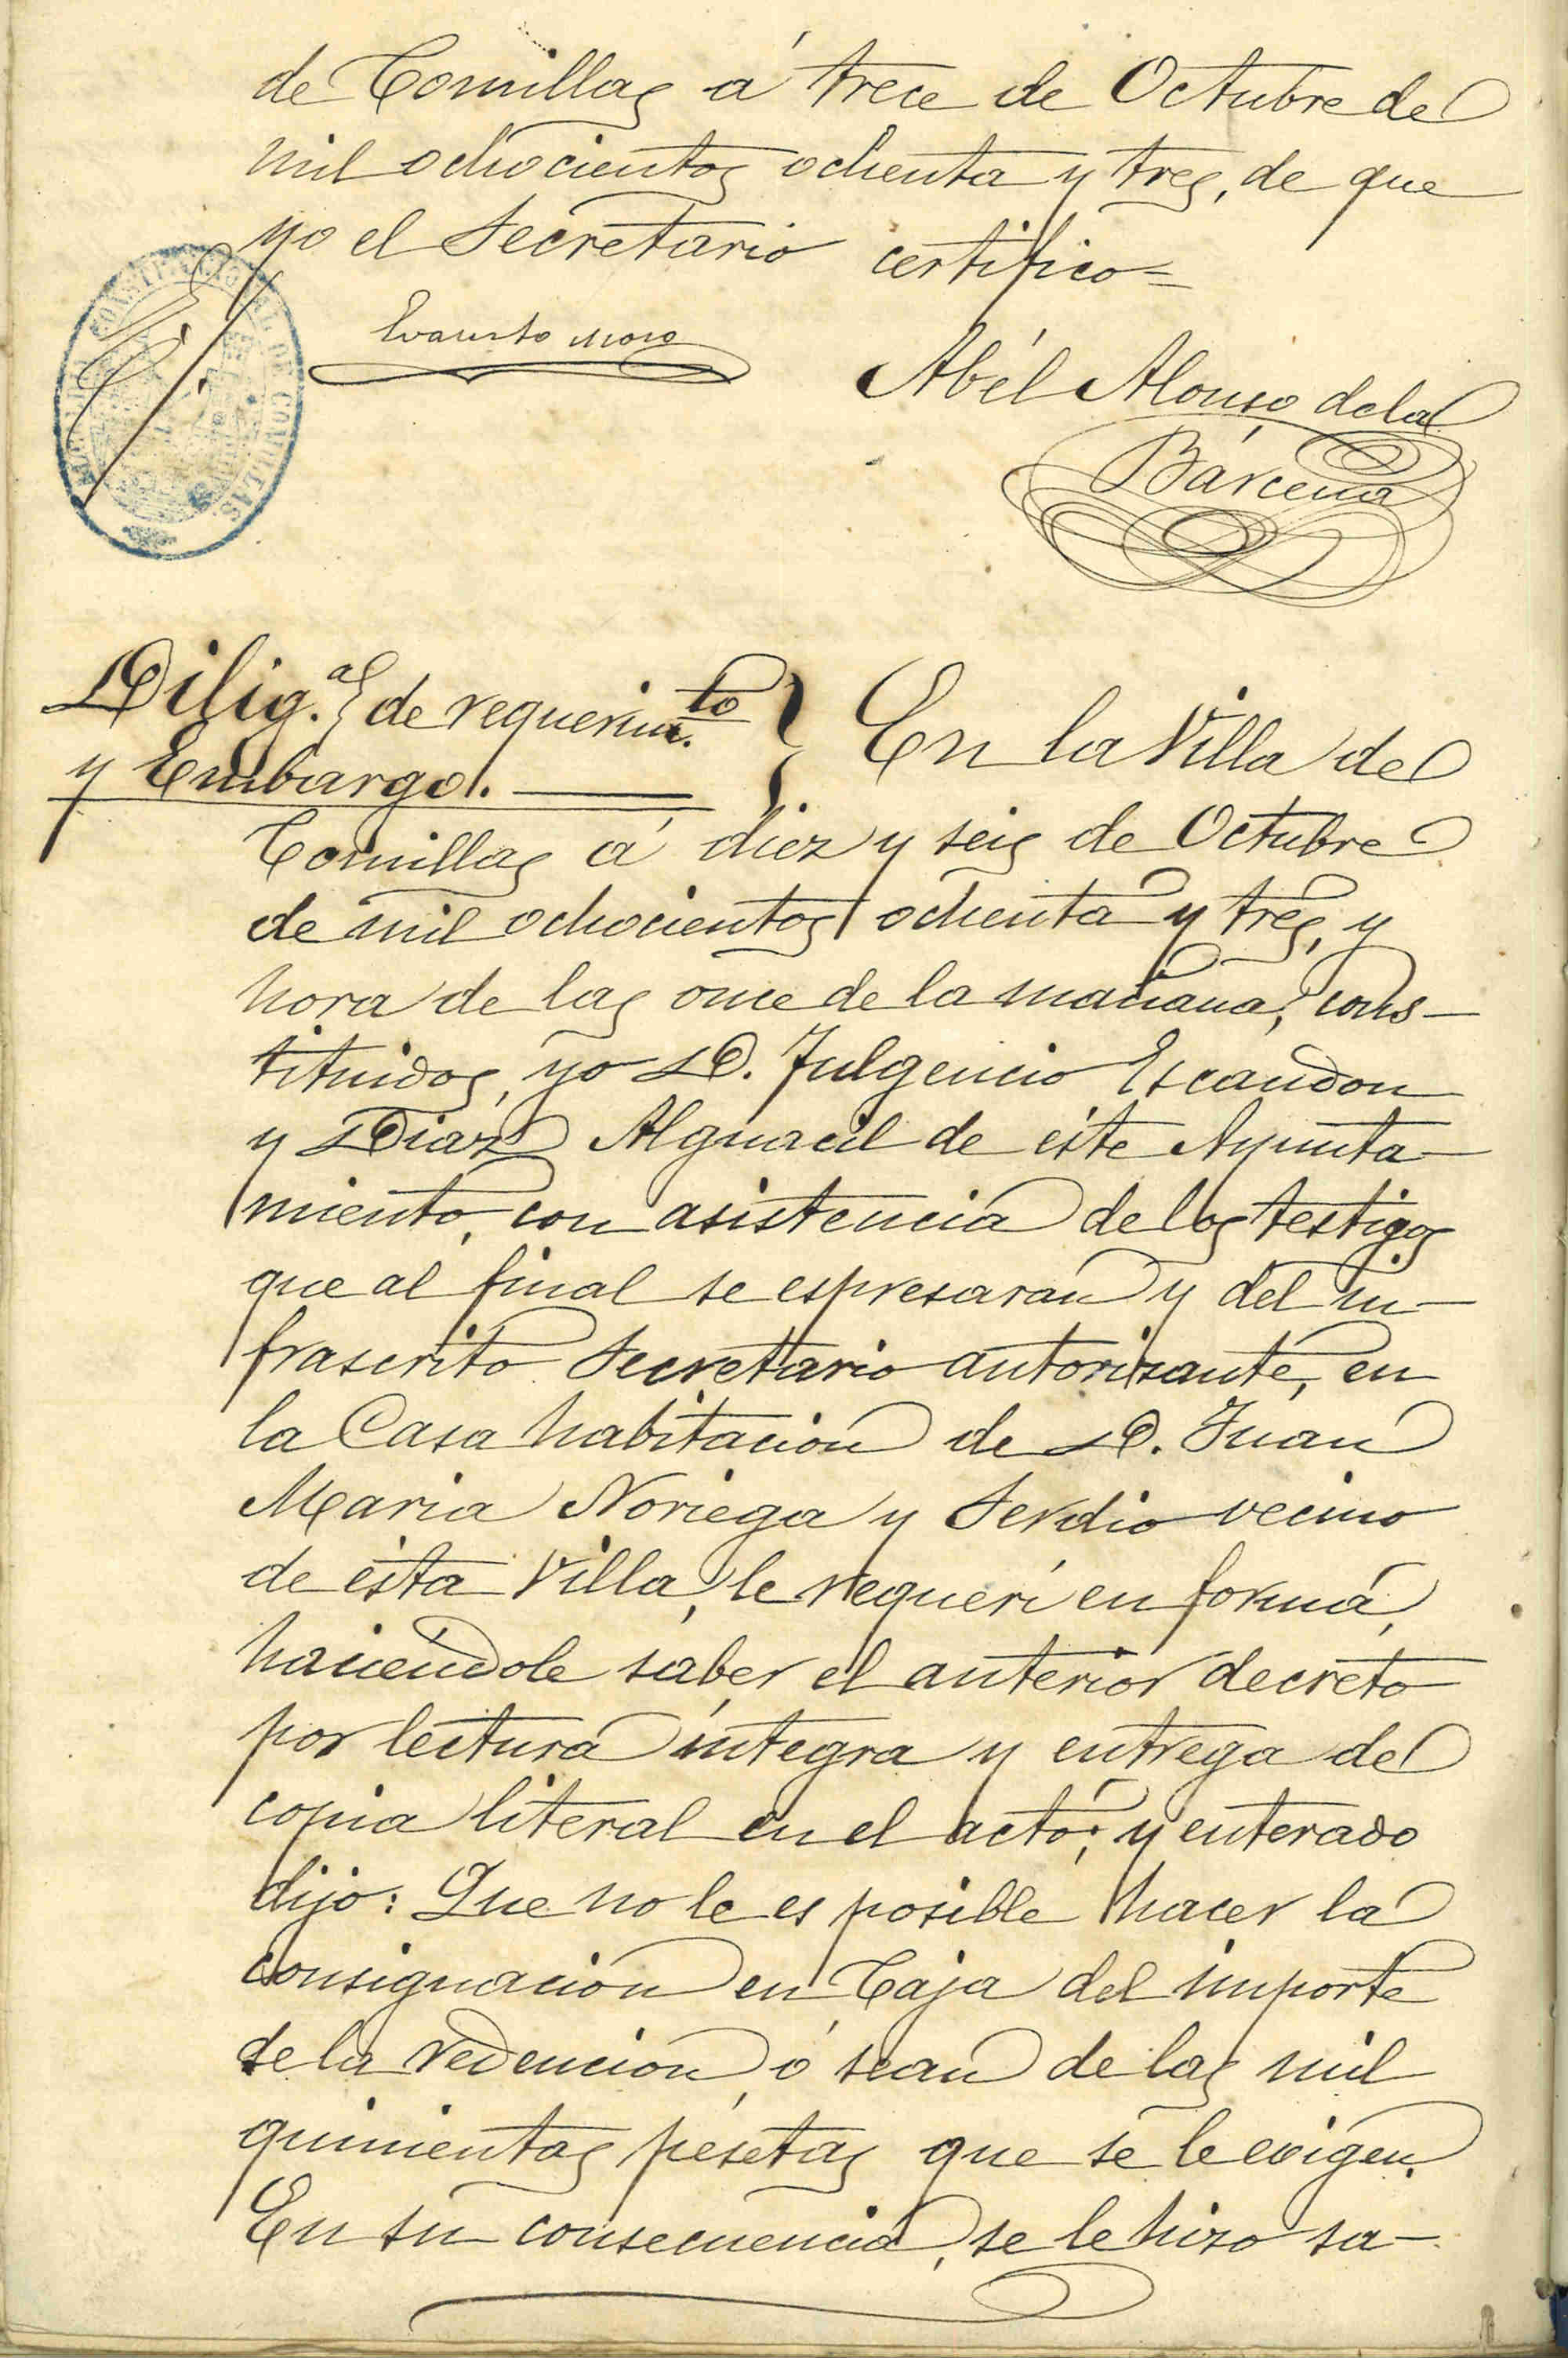 de Comillas á trece de Octubre de
mil ochocientos ochenta y tres, de que
yo el Secretario certifico=
Evaristo Moro
Abél Alonso de la
Bárcena
CONSTITUCIONAL DE COMILLAS
Dilig.as de requerim.to
y Embargo.
En la Villa de
Comillas á diez y seis de Octubre
de mil ochocientos ochenta y tres, y
hora de las once de la mañana, cons-
tituidos, yo D. Fulgencio Escandon
y Diaz Alguacil de éste Ayunta-
miento, con asistencia de los testigos
que al final se espresaran y del in-
frascrito Secretario autorizante, en
la Casa habitación de D. Juan
Maria Noriega y Serdio vecino
de ésta Villa, le requerí en forma,
haciéndole saber el anterior decreto
por lectura íntegra y entrega de
copia literal en el acto; y enterado
dijo: Que no le es posible hacer la
consignación en Caja del importe
de la redención, ó sean de las mil
quinientas pesetas que se le exigen.
En su consecuencia, se le hizo sa-